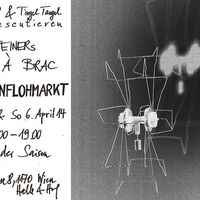 & Tingel Tangel
esentieren
EINERs
À BRAC
NFLOHMARKT
& So 6. April 14
00 – 19.00
der Saison
8, 1170 Wien
Halle & Hof